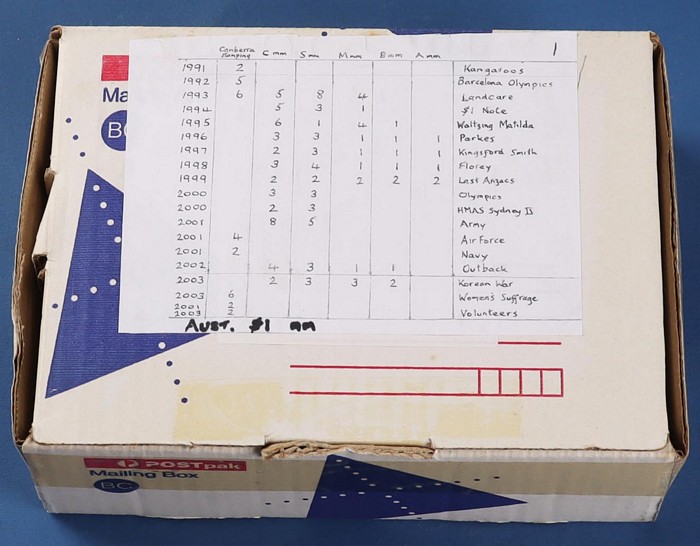 Canberra C mm S mm M mm B mm A mm 1
1991 2 Kangaroos
1992 5 Barcelona Olympics
1993 6 5 8 4 Landcare
1994 5 3 1 $1 Note
1995 6 1 4 1 Waltzing Matilda
1996 3 3 1 1 1 Parkes
1997 2 3 1 1 1 Kingsford Smith
1998 3 4 1 1 1 Florey
1999 2 2 2 2 2 Last Anzacs
2000 3 3 Olympics
2000 2 3 HMAS Sydney II
2001 8 5 Army
2001 4 Air Force
2001 2 Navy
2002 4 3 1 1 Outback
2003 2 3 3 2 Korean War
2003 6 Women's Suffrage
2001 2
2003 2 Volunteers
AUST. $1 mm
Ma
BC
POSTpak
Mailing Box
BC